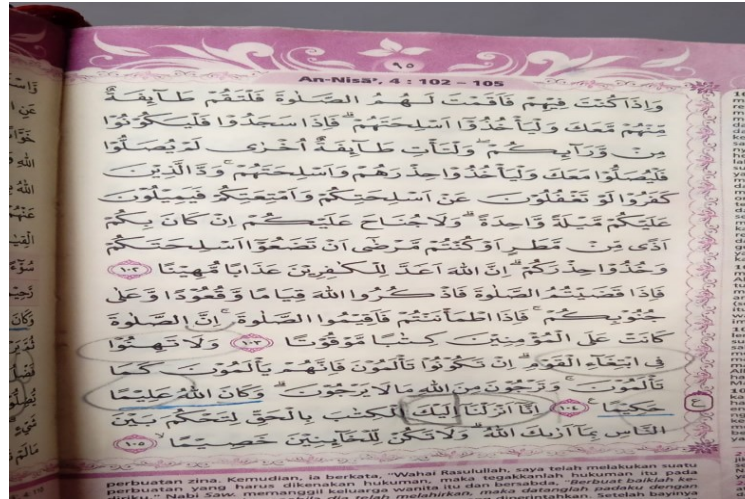 ٩٥
An-Nisā', 4 : 102 – 105
وَاِذَا كُنْتَ فِيْهِمْ فَاَقَمْتَ لَهُمُ الصَّلٰوةَ فَلْتَقُمْ طَاۤىِٕفَةٌ
مِّنْهُمْ مَّعَكَ وَلْيَأْخُذُوْٓا اَسْلِحَتَهُمْ ۗ فَاِذَا سَجَدُوْا فَلْيَكُوْنُوْا
مِنْ وَّرَاۤىِٕكُمْ ۖ وَلْتَأْتِ طَاۤىِٕفَةٌ اُخْرٰى لَمْ يُصَلُّوْا
فَلْيُصَلُّوْا مَعَكَ وَلْيَأْخُذُوْا حِذْرَهُمْ وَاَسْلِحَتَهُمْ ۚ وَدَّ الَّذِيْنَ
كَفَرُوْا لَوْ تَغْفُلُوْنَ عَنْ اَسْلِحَتِكُمْ وَاَمْتِعَتِكُمْ فَيَمِيْلُوْنَ
عَلَيْكُمْ مَّيْلَةً وَّاحِدَةً ۗ وَلَا جُنَاحَ عَلَيْكُمْ اِنْ كَانَ بِكُمْ
اَذًى مِّنْ مَّطَرٍ اَوْ كُنْتُمْ مَّرْضٰٓى اَنْ تَضَعُوْٓا اَسْلِحَتَكُمْ
وَخُذُوْا حِذْرَكُمْ ۗ اِنَّ اللّٰهَ اَعَدَّ لِلْكٰفِرِيْنَ عَذَابًا مُّهِيْنًا ١٠٢
فَاِذَا قَضَيْتُمُ الصَّلٰوةَ فَاذْكُرُوا اللّٰهَ قِيَامًا وَّقُعُوْدًا وَّعَلٰى
جُنُوْبِكُمْ ۚ فَاِذَا اطْمَأْنَنْتُمْ فَاَقِيْمُوا الصَّلٰوةَ ۚ اِنَّ الصَّلٰوةَ
كَانَتْ عَلَى الْمُؤْمِنِيْنَ كِتٰبًا مَّوْقُوْتًا ١٠٣ وَلَا تَهِنُوْا
فِى ابْتِغَاۤءِ الْقَوْمِ ۗ اِنْ تَكُوْنُوْا تَأْلَمُوْنَ فَاِنَّهُمْ يَأْلَمُوْنَ كَمَا
تَأْلَمُوْنَ ۚ وَتَرْجُوْنَ مِنَ اللّٰهِ مَا لَا يَرْجُوْنَ ۗ وَكَانَ اللّٰهُ عَلِيْمًا
حَكِيْمًا ࣖ ١٠٤ اِنَّآ اَنْزَلْنَآ اِلَيْكَ الْكِتٰبَ بِالْحَقِّ لِتَحْكُمَ بَيْنَ
النَّاسِ بِمَآ اَرٰىكَ اللّٰهُ ۗ وَلَا تَكُنْ لِّلْخَاۤىِٕنِيْنَ خَصِيْمًا ۙ ١٠٥
perbuatan zina. Kemudian, ia berkata, "Wahai Rasulullah, saya telah melakukan suatu
perbuatan yang harus dikenakan hukuman, maka tegakkanlah hukuman itu pada
Nabi Saw. memanggil keluarga wanita itu dan bersabda, "Berbuat baiklah ke-
dia telah melahirkan, maka datanglah padaku dengan